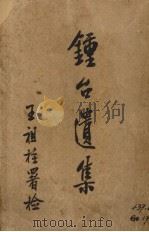 鍾台遺集
王祖畬署檢